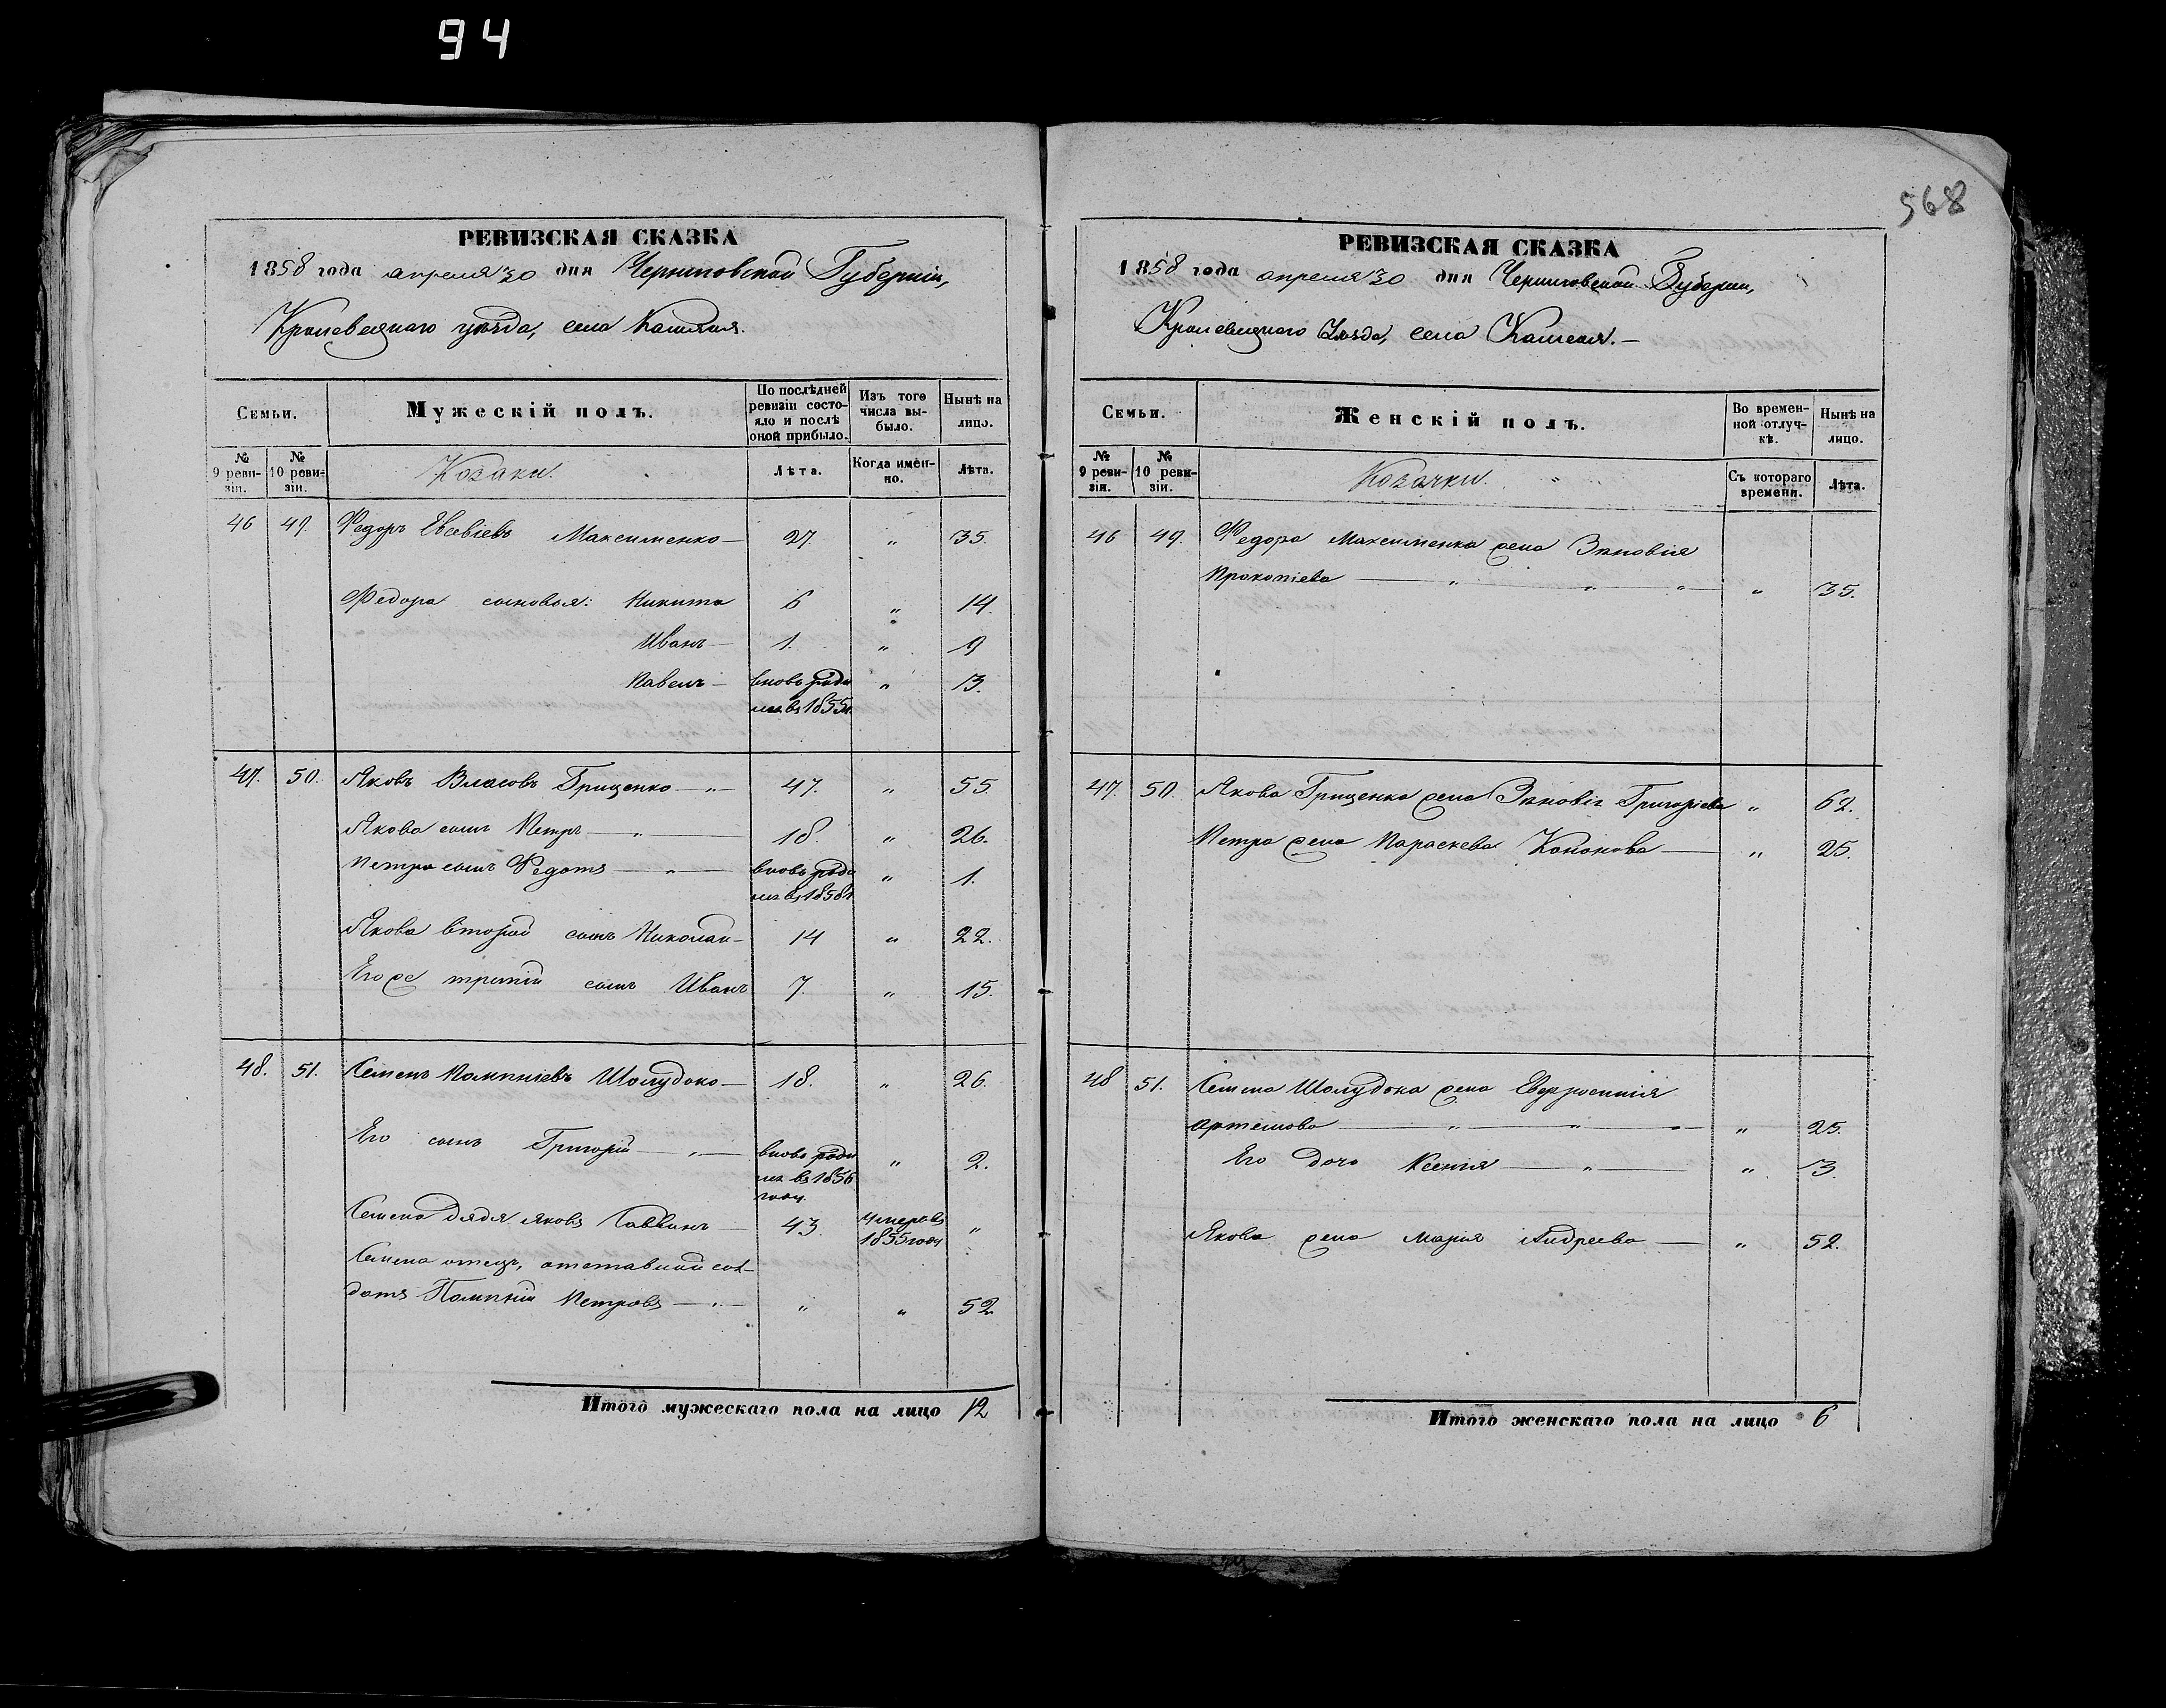 94
568
РЕВИЗСКАЯ СКАЗКА
1858 года апреля 30 дня Черниговской Губерніи,
Кролевецкаго уѣзда, села
Семьи.
Мужескій полъ.
По послѣдней ревизіи состояло и послѣ оной прибыло.
Изъ того числа выбыло.
Нынѣ на лицо.
№ 9 ревизіи.
№ 10 ревизіи.
Козаки.
Лѣта.
Когда именно.
Лѣта.
46 49. Федоръ Евсевіевъ Максименко — 27. " 35.
Федора сыновья: Никита 6 " 14.
Иванъ — 1. " 9
Павелъ — вновь роди " 3.
лся въ 1855 г.
47. 50. Яковъ Власовъ Грищенко — " — 47. " 55.
Якова сынъ Петръ — " — 18. " 26.
Петра сынъ Федотъ — " — вновь роди " 1.
лся въ 1858 г
Якова второй сынъ Николай — 14 " 22.
Его же третій сынъ Иванъ 7. " 15.
48. 51. Семенъ Шолудько — 18. " 26.
Его сынъ Григорій — " — вновь роди " 2.
лся въ 1856
году.
Семена дядя Яковъ — 43. умеръ въ "
1855 году
Семена отецъ, отставной сол-
датъ Петровъ — " — " " 52
Итого мужескаго пола на лицо 12
РЕВИЗСКАЯ СКАЗКА
1858 года апреля 30 дня Черниговской Губерніи,
Кролевецкаго Уѣзда, села
Семьи.
Женскій полъ.
Во временной отлучкѣ.
Нынѣ на лицо.
№ 9 ревизіи.
№ 10 ревизіи.
Козачки.
Съ котораго времени.
Лѣта.
46 49. Федора Максименка жена Зиновія
Прокопіева — " " " — " 35.
47. 50. Якова Грищенка жена Зиновія Григоріева " 62.
Петра жена Параскева Кононова — " 25.
48 51. Семена Шолудька жена Евфросинія
Артемова — " " " — " 25.
Его дочь Ксенія — " — " 3.
Якова жена Марія Андреева — " 52.
Итого женскаго пола на лицо 6